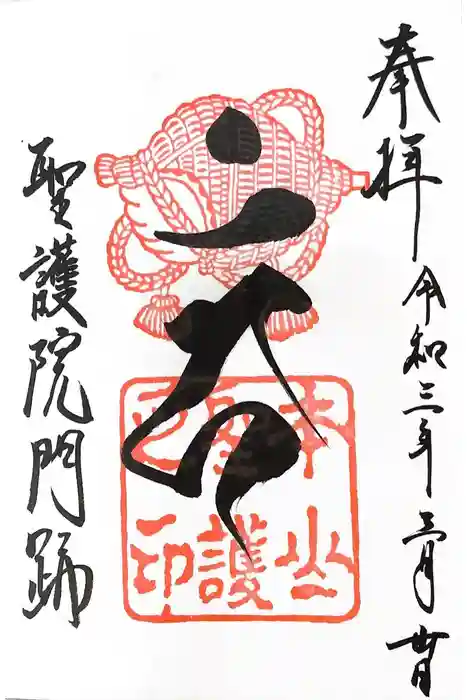 奉拝 令和三年三月廿日
本山
聖護
印
聖護院門跡